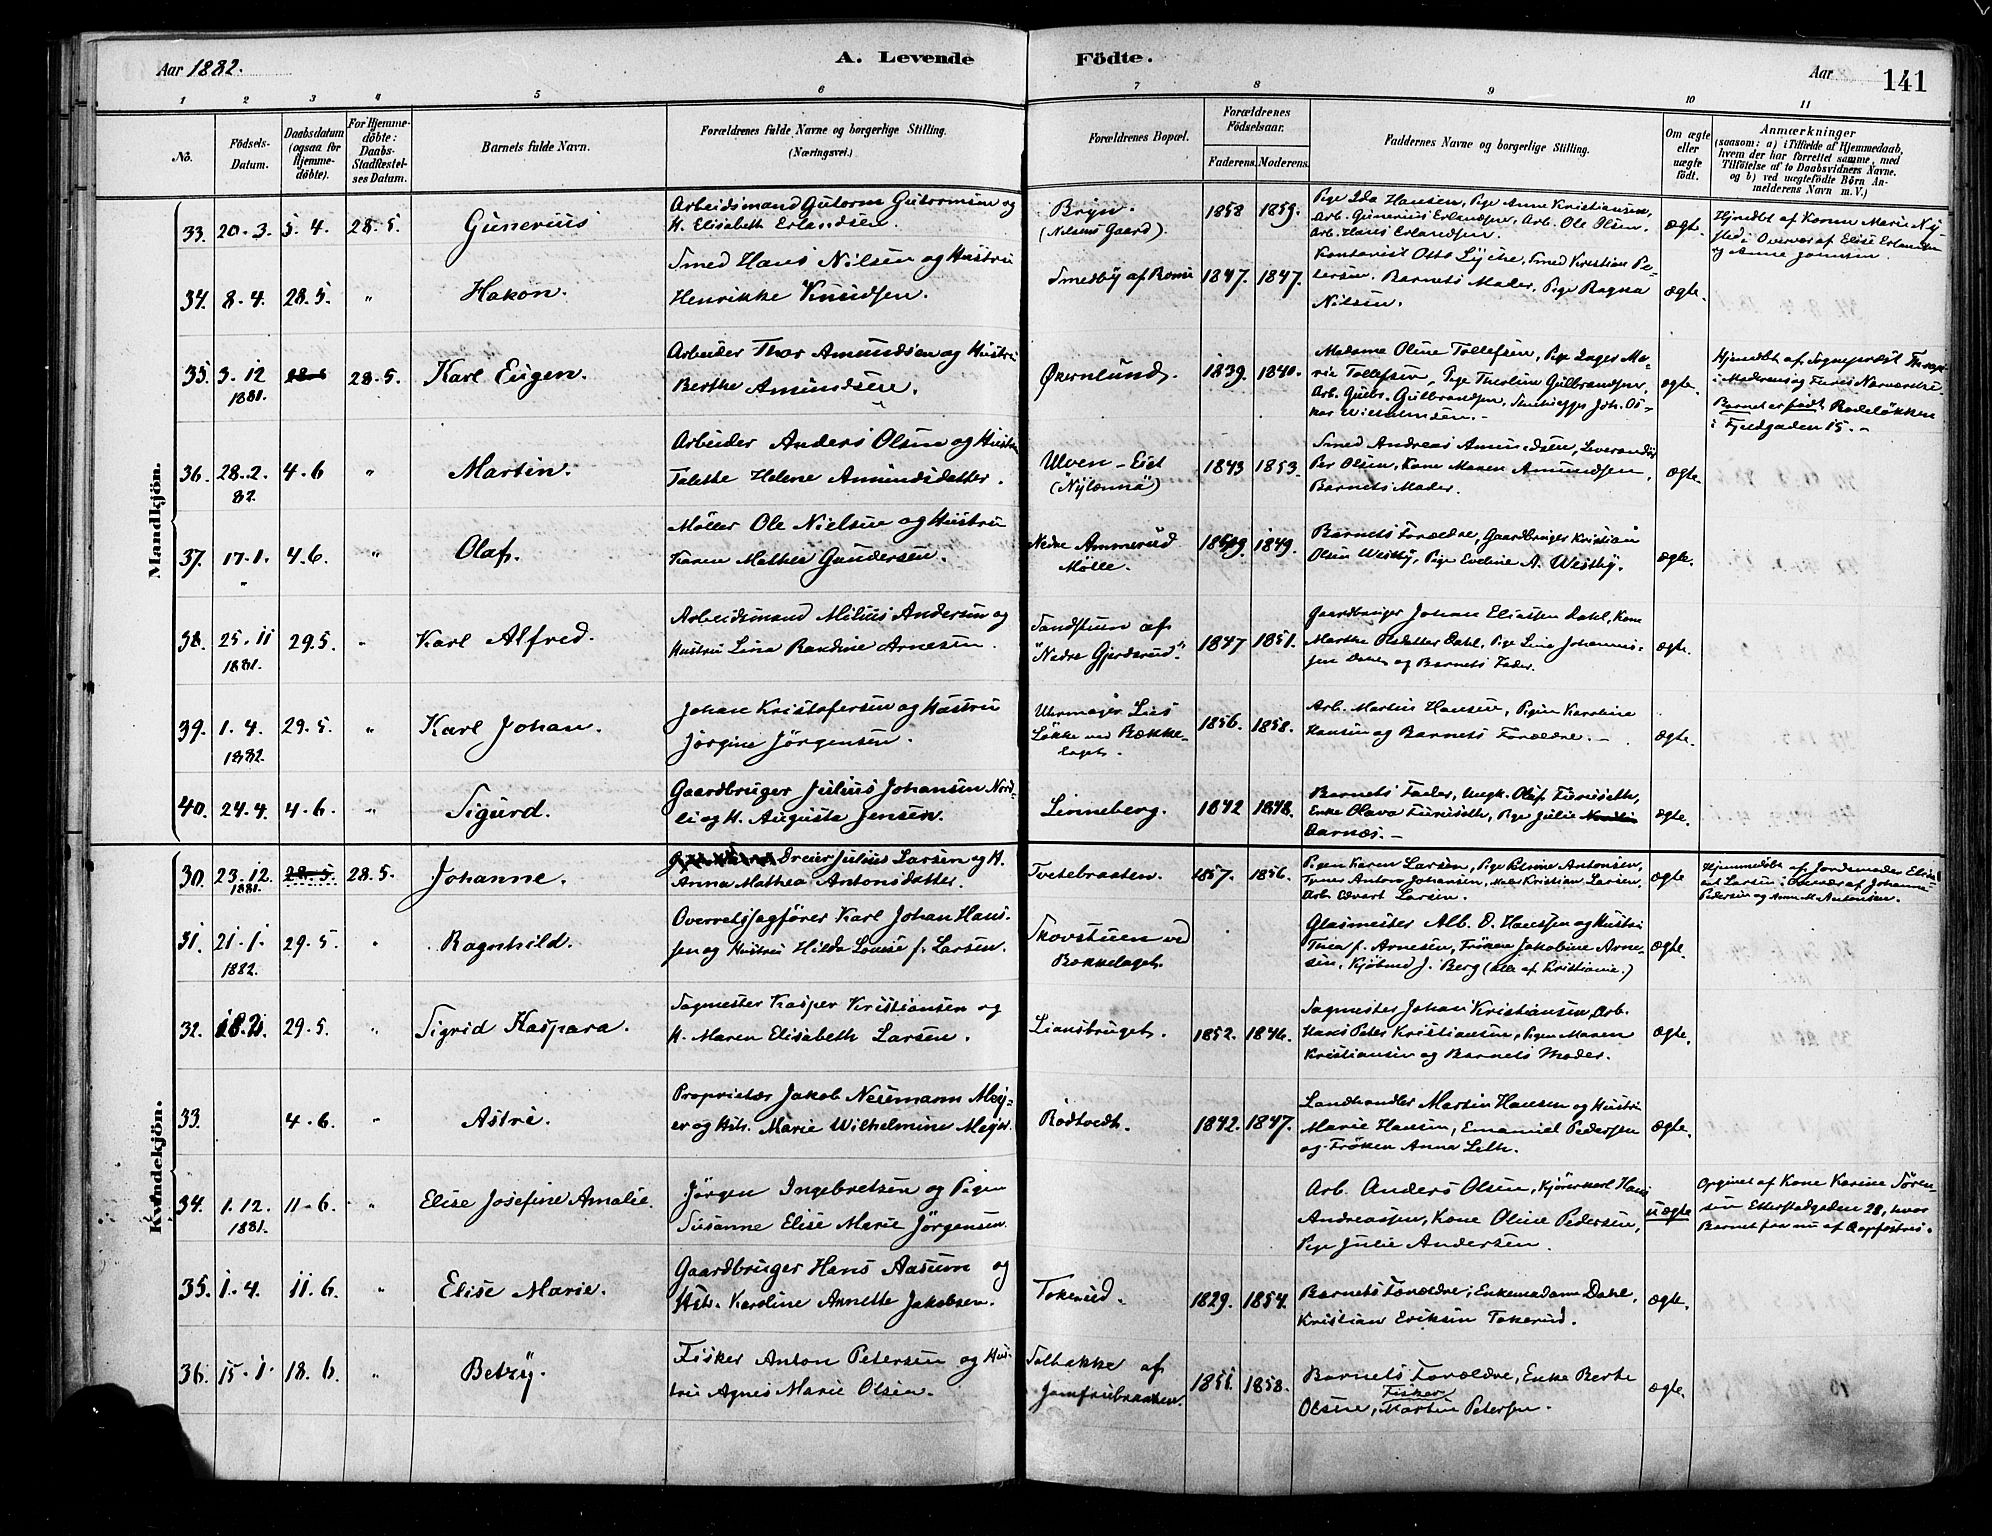 Aar 1882.
A. Levende Födte.
Aar 141
1 2 3 4 5 6 7 8 9 10 11
No.
Födsels-Datum.
Daabsdatum (ogsaa for Hjemmedöbte).
For Hjemmedöbte: Daabs-Stadfæstelses Datum.
Barnets fulde Navn.
Forældrenes fulde Navne og borgerlige Stilling. (Næringsvei.)
Forældrenes Bopæl.
Forældrenes Födselsaar.
Faderens. Moderens.
Faddernes Navne og borgerlige Stilling.
Om ægte eller uægte födt.
Anmærkninger
(saasom: a) i Tilfælde af Hjemmedaab, hvem der har forrettet samme, med Tilföielse af to Daabsvidners Navne. og b) ved uægtefödte Börn Anmelderens Navn m. V.)
Mandkjön.
33. 20-3. 5-4. 28-5. Gunerius
Arbeidsmand Gutorm Gutormsen og
H. Elisabeth Erlandsen.
Bryn.
(Nilsens Gaard).
1858 1859.
Pige Ida Hansen, Pige Anne Kristiansen,
Arb. Gunerius Erlandsen, Arb. Ole Olsen,
Arb. Hans Erlandsen.
ægte.
Hjmdbt af Karen Marie Ny-
sted i Overvær af Elise Erlandsen
og Anne Johnsen.
34. 8-4. 28.5. " Hakon.
Smed Hans Nilsen og Hustru
Henrikke Knudsen.
Smedby af
1847. 1847.
Kontorist Otto Lyche, Smed Kristian Pe-
tersen. Barnets Moder, Pige Ragna
Nilsen.
ægte.
35. 3.12 1881. 28-5 28-5. Karl Eugen.
Arbeider Thor Amundsen og Hustru
Berthe Amundsen.
Økernlund.
1839. 1840.
Madame Oline Tollefsen, Pige Inger Ma-
rie Tollefsen, Pige Theoline Gulbrandsen,
Arb. Gulbr. Gulbrandsen, Joh. Os-
kar Wilhelmsen.
ægte.
Hjmdbt af Sogneprest
i Moderens og Nærværelse.
Barnet er født Rodeløkken
i Fjeldgaden 15.
36. 28.2. 82. 4-6 " Martin.
Arbeider Anders Olsen og Hustru
Talette Helene Amundsdatter.
Ulven-Eiet
1843 1853.
Smed Andreas Amundsen, Leverandør
Per Olsen, Kone Maren Amundsen,
Barnets Moder.
ægte.
37. 17-1. " 4.6. " Olaf.
Møller Ole Nielsen og Hustru
Karen Mathea Gundersen.
Nedre Ammerud
Mølle.
1849.
Barnets Forældre, Gaardbruger Kristian
Olsen Westby, Pige Eveline A. Westby.
ægte.
38. 25.11 1881. 29.5. " Karl Alfred.
Arbeidsmand Milius Andersen og
Hustru Lina Randine Arnesen.
Sandstuen af
"Nedre Gjerdsrud".
1847 1851.
Gaardbruger Johan Eliassen Dahl, Kone
Marthe Olsdatter Dahl, Pige Lina Johannes-
sen Dahl og Barnets Fader.
ægte.
39. 1.4. 1882. 29.5. " Karl Johan.
Johan Kristofersen og Hustru
Jørgine Jørgensen.
Uhrmager Lies
Løkke ved Bække-
laget.
1856. 1858.
Arb. Martin Hansen, Pigen Karoline
Hansen og Barnets Forældre.
ægte.
40. 24.4. 4-6. " Sigurd.
Gaardbruger Julius Johansen Nord-
li og H. Augusta Jensen.
Linneberg.
1842 1848.
Barnets Fader, Ungk. Olaf Furuseth,
Enke Olava Furuseth, Pige Julie
Darnæs.
ægte.
Kvindekjön.
30. 23.12. 1881. 28-5. 28.5. Johanne.
Dreier Julius Larsen og H.
Anna Mathea Antonsdatter.
Tvetebraaten.
1857. 1856.
Pigen Karen Larsen, Pige Petrine Antonsen,
Anton Johansen, Maler Kristian Larsen,
Arb. Edvart Larsen.
ægte
Hjemmedøbt af Jordemoder Elisa-
bet Larsen i Overvær af Johanne
Pedersen og Ann M. Antonsen.
31. 21-1. 1882. 29-5. " Ragnhild.
Overretssagfører Karl Johan Hans-
sen og Hustru Hilda Louise f. Larsen.
Skovstuen ved
Bækkelaget.
Glasmester Alb. O. Hanssen og Hustru
Thea f. Arnesen, Frøken Jakobine Arne-
sen, Kjøbmd J. Berg (alle af Kristiania.)
ægte.
32. 29.5. " Sigrid Kaspara.
Sagmester Kasper Kristiansen og
H. Maren Elisabeth Larsen.
Liansbruget.
1852. 1846.
Sagmester Johan Kristiansen, Arb.
Hans Peter Kristiansen, Pigen Maren
Kristiansen og Barnets Moder.
ægte.
33. 4-6. " Astri.
Proprietær Jakob Neumann Mey-
er og Hstr. Marie Wilhelmine Meyer.
Rödtvedt.
1842. 1847.
Landhandler Martin Hansen og Hustru
Marie Hansen, Emanuel Pedersen
og Frøken Anna Leth.
ægte.
34. 1.12. 1881. 11-6. " Elise Josefine Amalie.
Jørgen Ingebretsen og Pigen
Susanne Elise Marie Jørgensen.
Arb. Anders Olsen, Kjørerkarl Hans
Andreassen, Kone Oline Pedersen,
Pige Julie Andersen.
uægte
Opgivet af Kone Karine Søren-
sen Etterstadgaden 28, hvor
Barnet for nu af Opfostres.
35. 1-4. 11.6. " Elise Marie.
Gaardbruger Hans Aasum og
Hstr. Karoline Annette Jakobsen.
Tokerud.
1829. 1854.
Barnets Forældre, Enkemadame Dahl,
Kristian Eriksen Tokerud.
ægte.
36. 15-1. 18.6. " Betzy.
Fisker Anton Petersen og Hus-
tru Agnes Marie Olsen.
Solbakke af
Jomfrubraaten.
1851. 1858.
Barnets Forældre, Enke Berte
Olsen, Fisker Martin Petersen.
ægte.